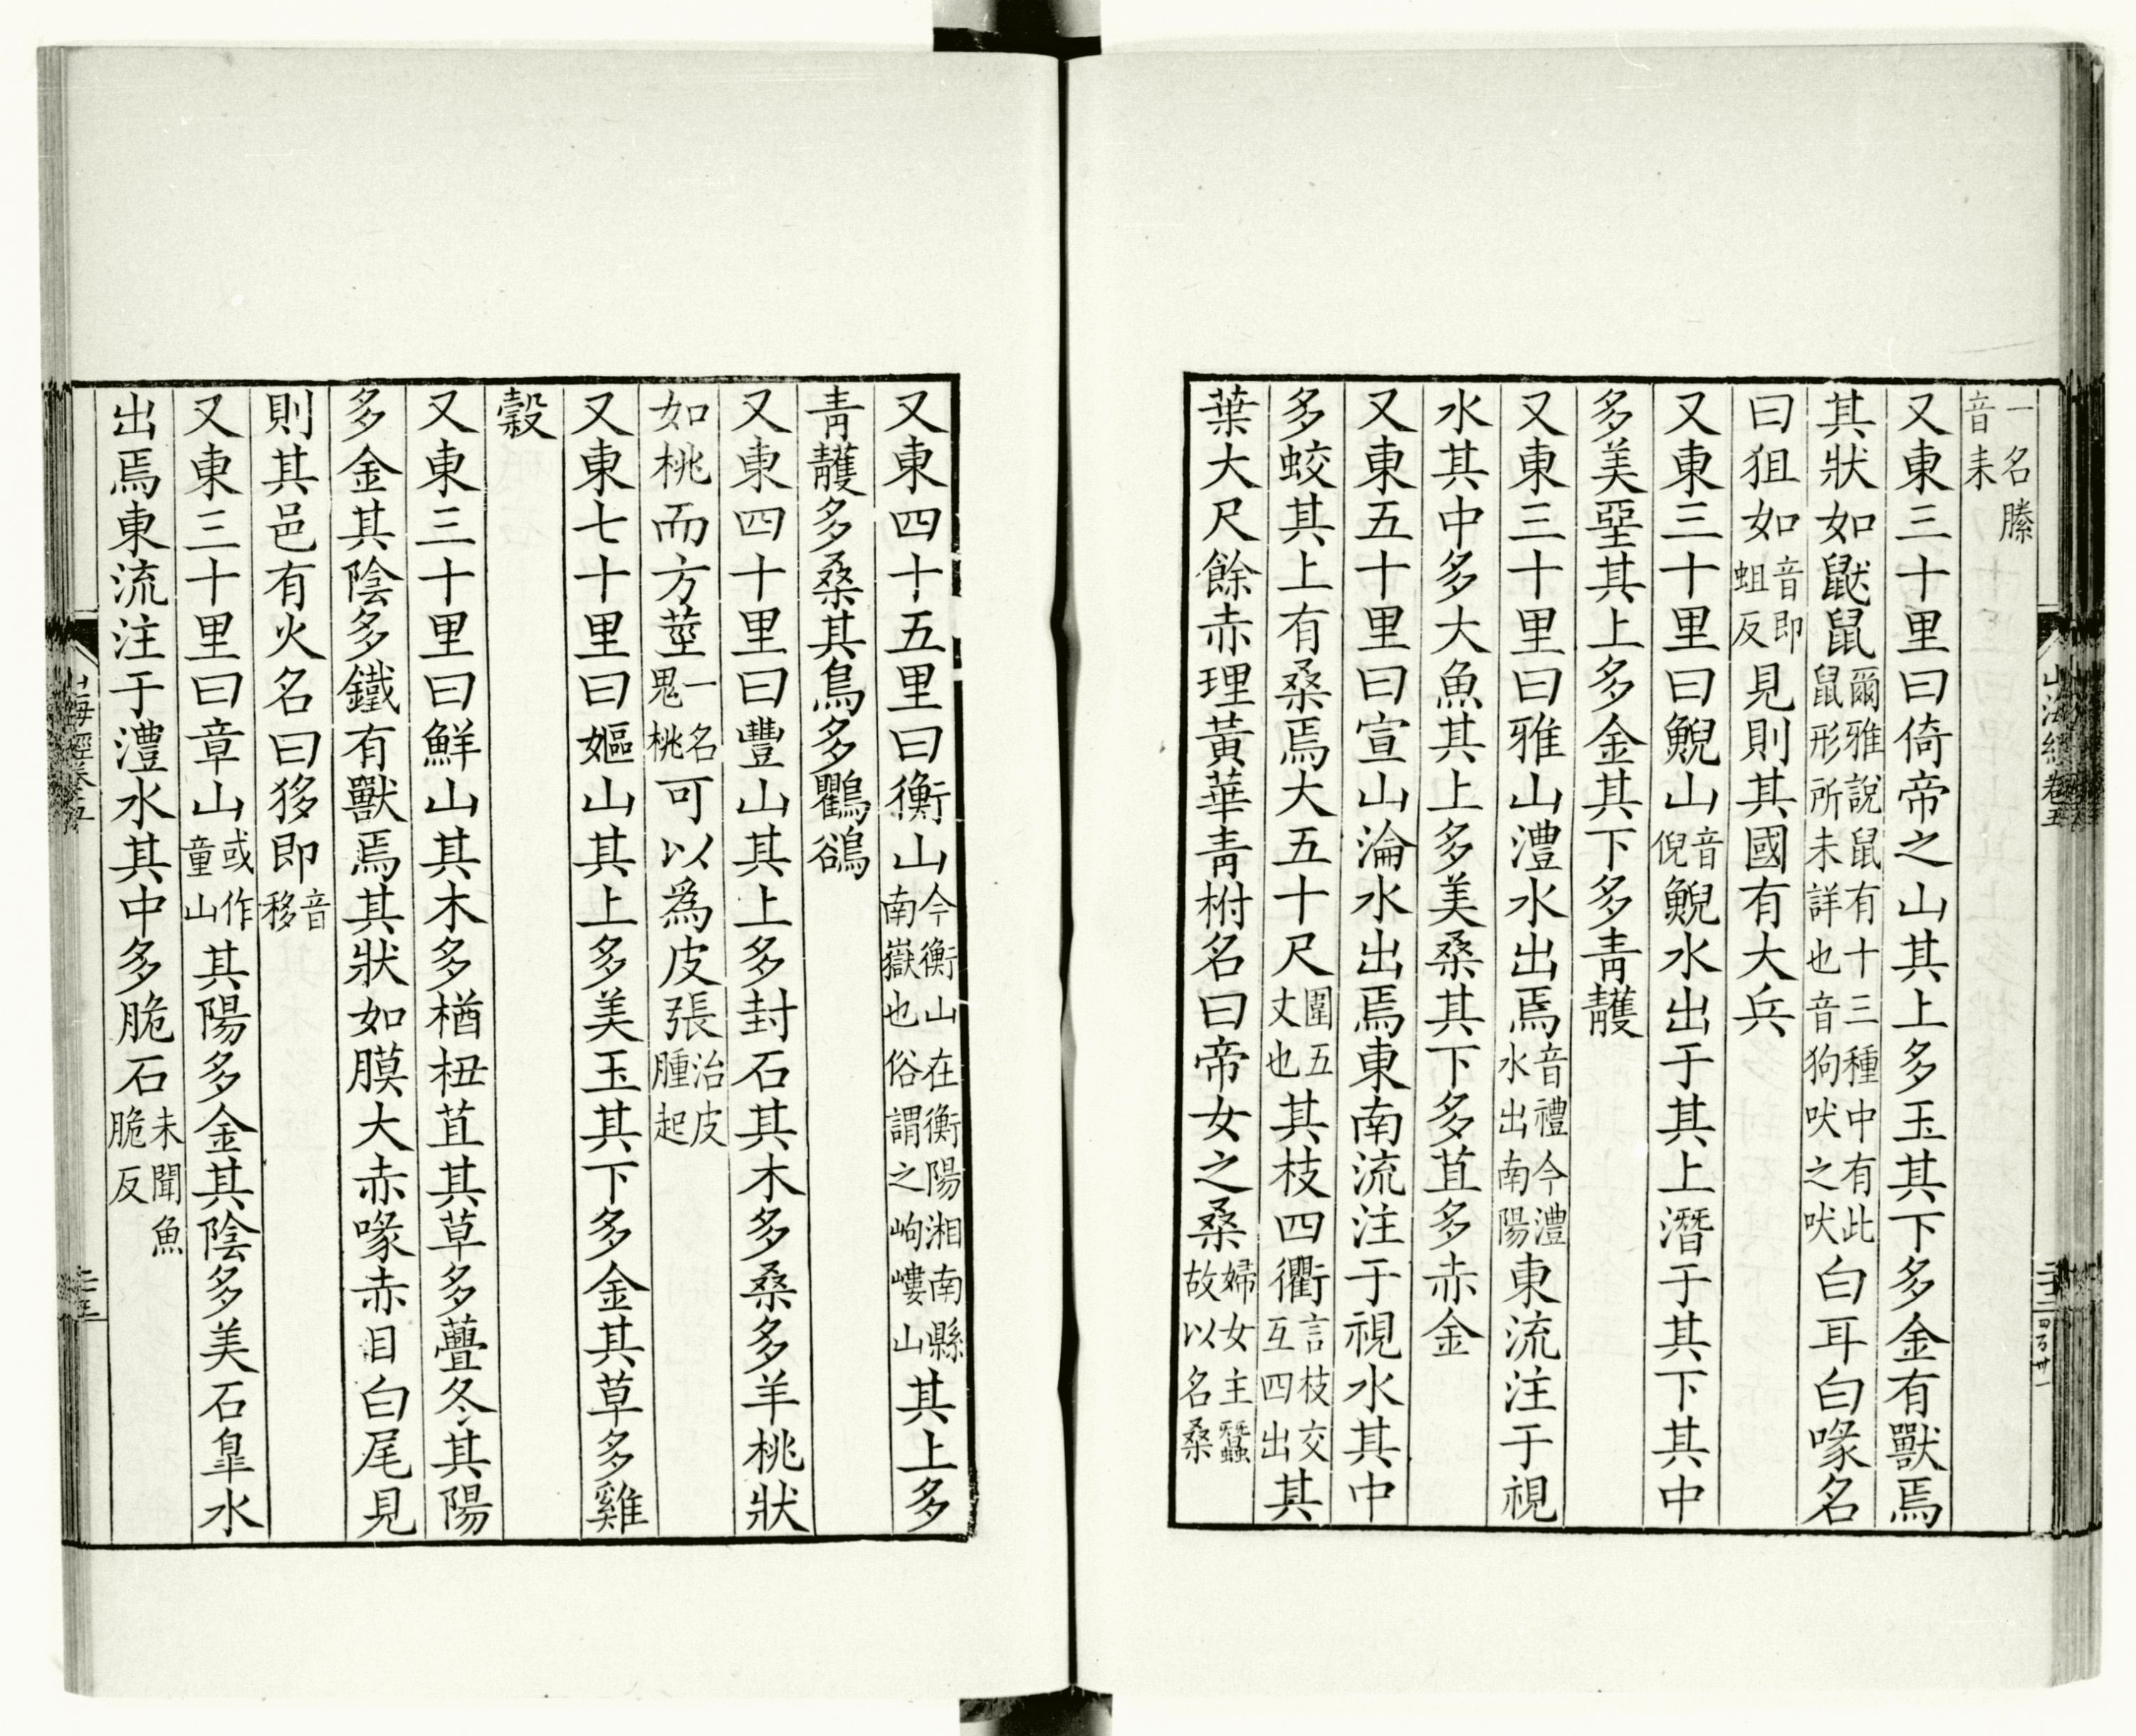 一名滕音耒
又東三十里曰倚帝之山其上多玉其下多金有獸焉
其狀如鼣鼠爾雅說鼠有十三種中有此鼠形所未詳也音狗吠之吠白耳白喙名
曰狙如音即蛆反見則其國有大兵
又東三十里曰鯢山音倪鯢水出于其上潛于其下其中
多美堊其上多金其下多青雘
又東三十里曰雅山澧水出焉音禮今澧水出南陽東流注于視
水其中多大魚其上多美桑其下多苴多赤金
又東五十里曰宣山淪水出焉東南流注于視水其中
多蛟其上有桑焉大五十尺圍五丈也其枝四衢言枝交互四出其
葉大尺餘赤理黃華青柎名曰帝女之桑婦女主蠶故以名桑
山海經卷五
又東四十五里曰衡山今衡山在衡陽湘南縣南嶽也俗謂之岣嶁山其上多
青雘多桑其鳥多鸜鵒
又東四十里曰豐山其上多封石其木多桑多羊桃狀
如桃而方莖一名鬼桃可以爲皮張治皮腫起
又東七十里曰嫗山其上多美玉其下多金其草多雞
穀
又東三十里曰鮮山其木多楢杻苴其草多虋冬其陽
多金其陰多鐵有獸焉其狀如膜大赤喙赤目白尾見
則其邑有火名曰㹢即音移
又東三十里曰章山或作童山其陽多金其陰多美石皐水
出焉東流注于澧水其中多脆石未聞魚脆反
山海經卷五